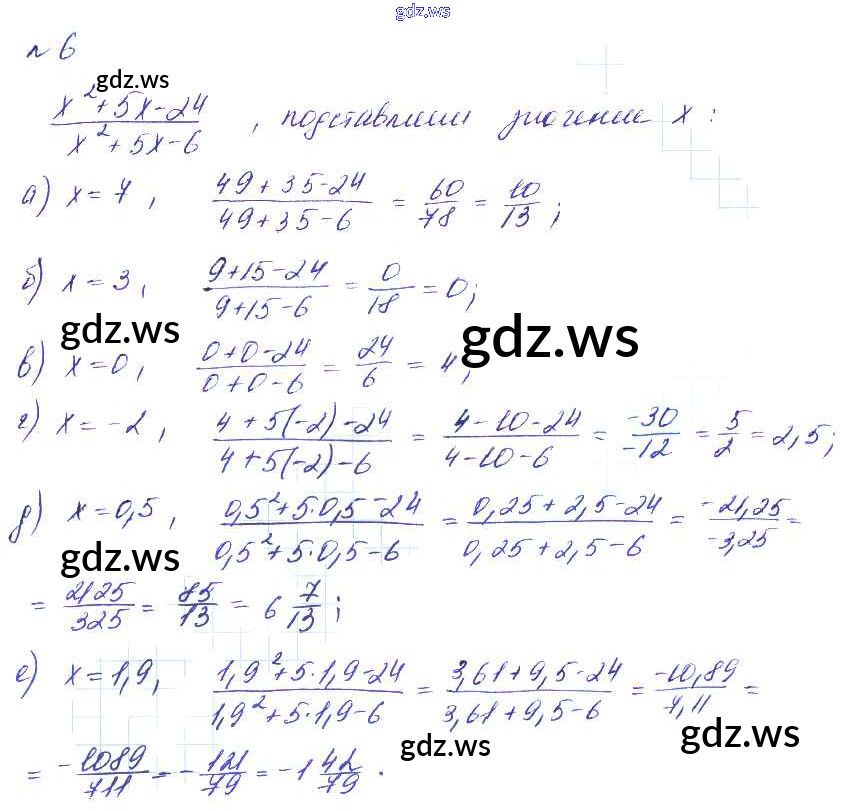 gdz.ws
№ 6
gdz.ws
x²+5x-24 / x²+5x-6 , подставляем значение x:
а) x=7, 49+35-24 / 49+35-6 = 60/78 = 10/13;
б) x=3, 9+15-24 / 9+15-6 = 0/18 = 0;
gdz.ws gdz.ws
в) x=0, 0+0-24 / 0+0-6 = 24/6 = 4;
г) x=-2, 4+5(-2)-24 / 4+5(-2)-6 = 4-10-24 / 4-10-6 = -30/-12 = 5/2 = 2,5;
д) x=0,5, 0,5²+5·0,5-24 / 0,5²+5·0,5-6 = 0,25+2,5-24 / 0,25+2,5-6 = -21,25/-3,25 =
gdz.ws
= 2125/325 = 85/13 = 6 7/13;
е) x=1,9, 1,9²+5·1,9-24 / 1,9²+5·1,9-6 = 3,61+9,5-24 / 3,61+9,5-6 = -10,89/7,11 =
gdz.ws gdz.ws
= -1089/711 = -121/79 = -1 42/79.